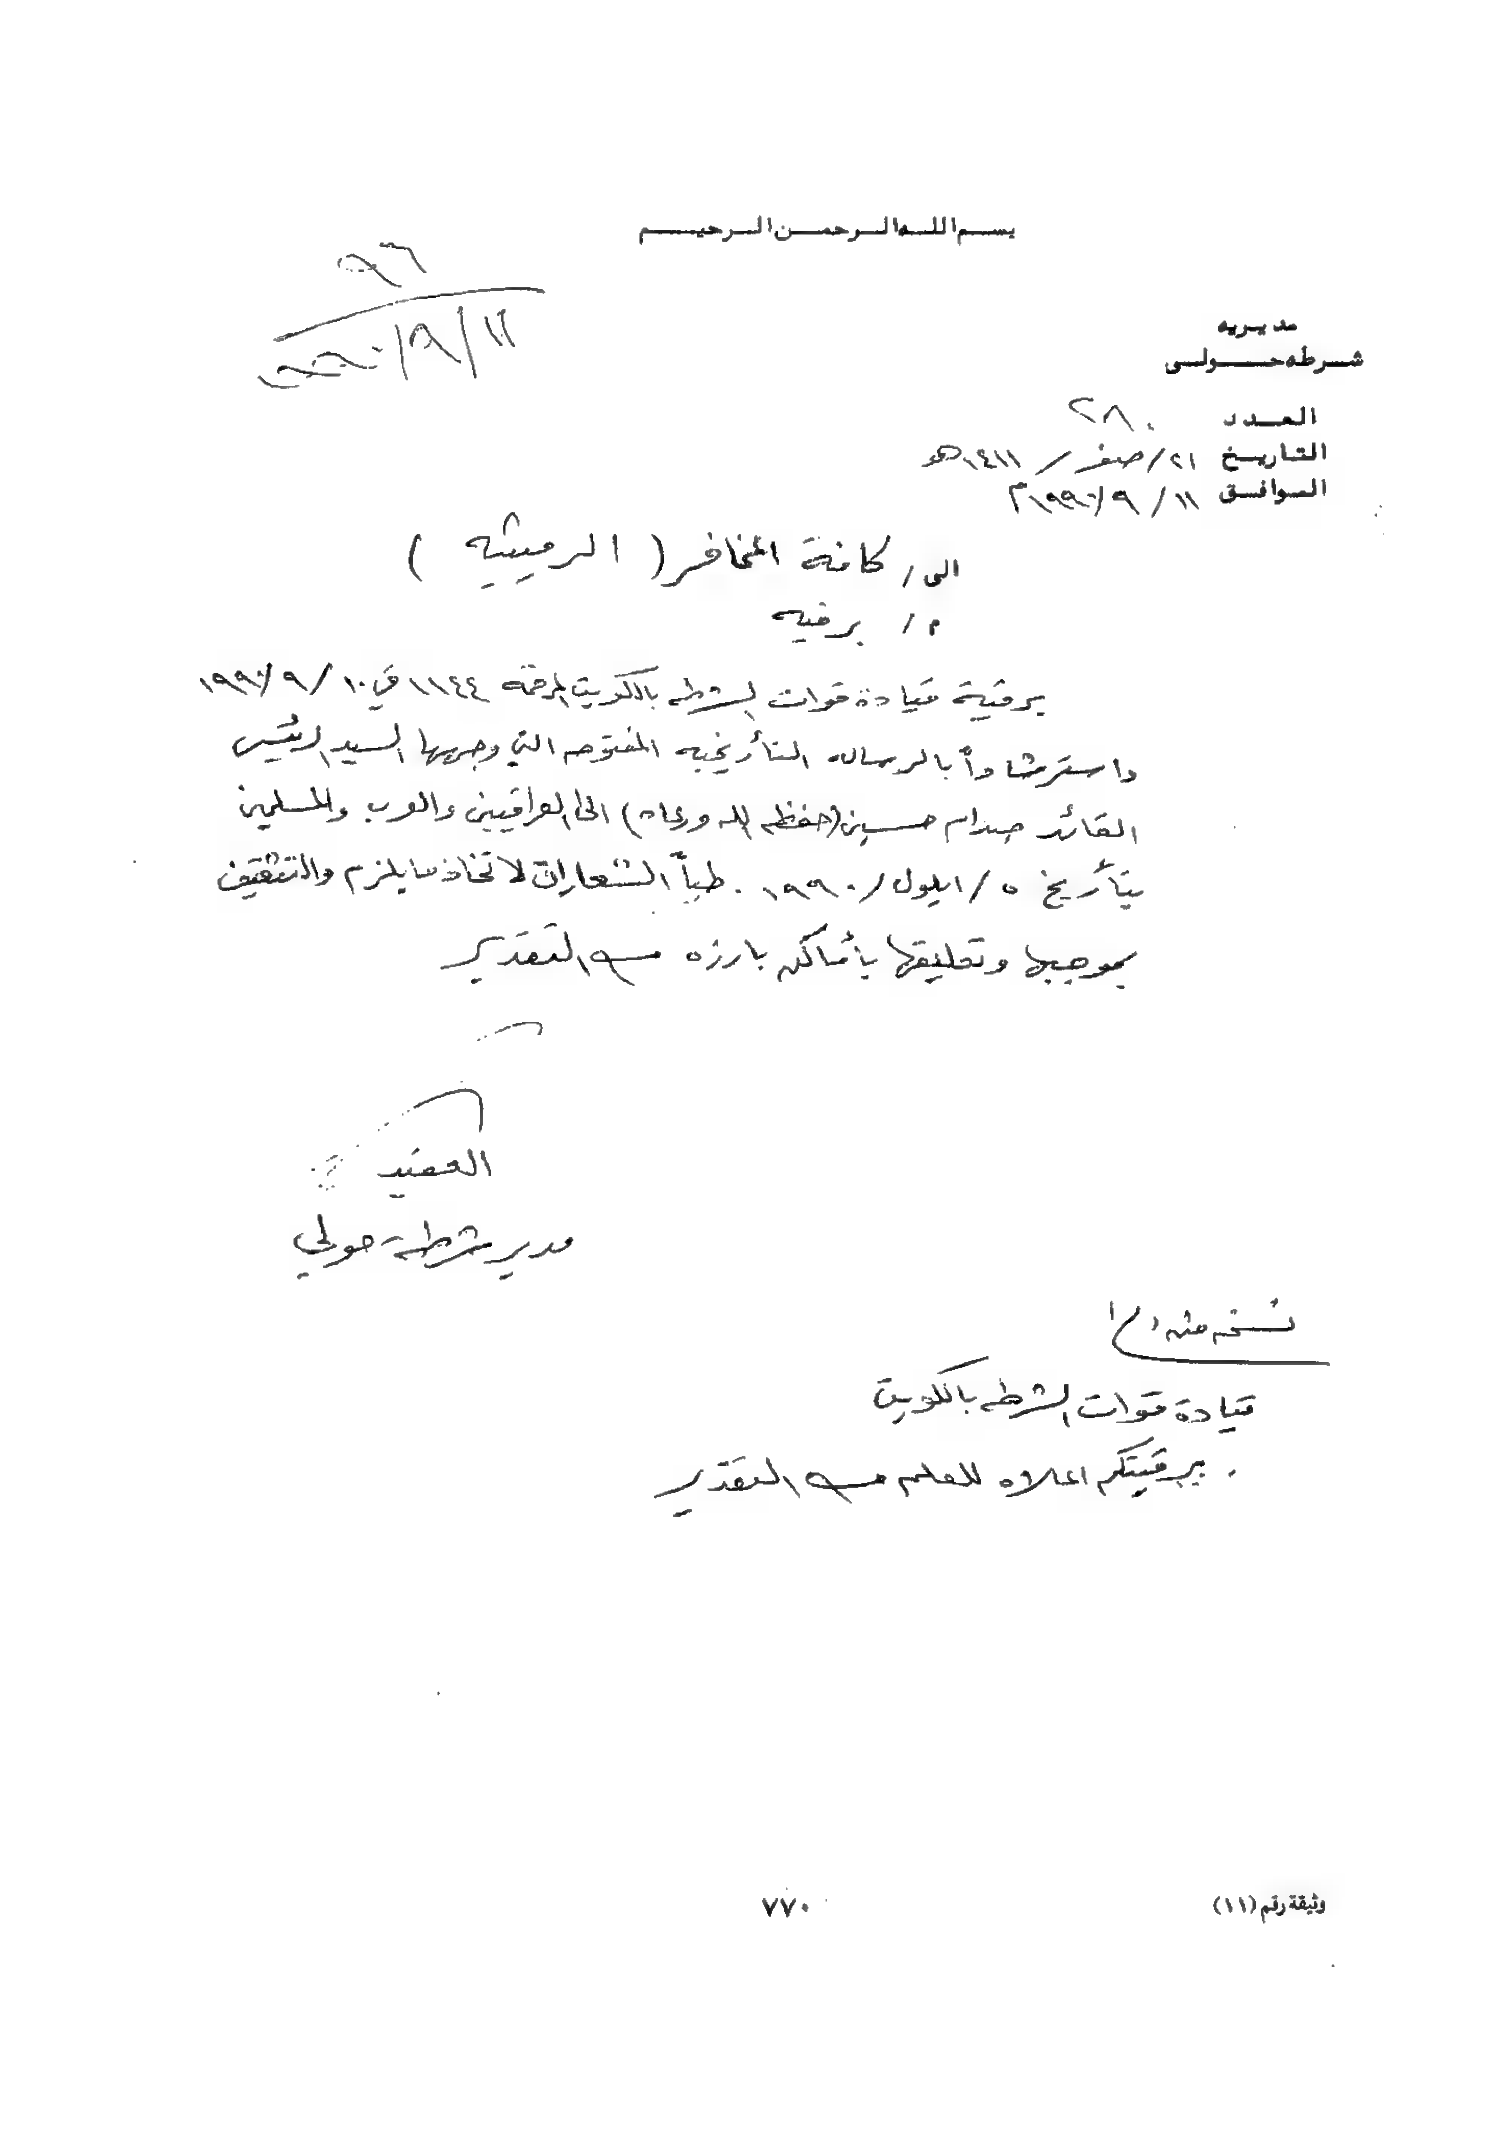 بسم الله الرحمن الرحيم
٩٦
١١/٩/٩٩٠
مديريه
شرطه حولي
العدد ٢٨٠
التاريخ ٢١/صفر/١٤١١هـ
الموافق ١١/٩/١٩٩٠م
الى/ كافة المخافر (الرميثيه)
م/ برقيه
برقية قيادة قوات الشرطه بالكويت المرقمة ١١٤٤ في ١٠/٩/١٩٩٠
واسترشاداً بالرساله التأريخيه المفتوحه التي وجهها السيد الرئيس
القائد صدام حسين (حفظه الله ورعاه) الى العراقيين والعرب والمسلمين
بتأريخ ٥/ايلول/١٩٩٠. طياً الشعارات لاتخاذ مايلزم والتثقيف
بموجبها وتعليقها بأماكن بارزه مع التقدير
العقيد
مدير شرطة حولي
نسخه منه الى/
قيادة قوات الشرطه بالكويت
. برقيتكم اعلاه للعلم مع التقدير
وثيقة رقم (١١)
٧٧٠